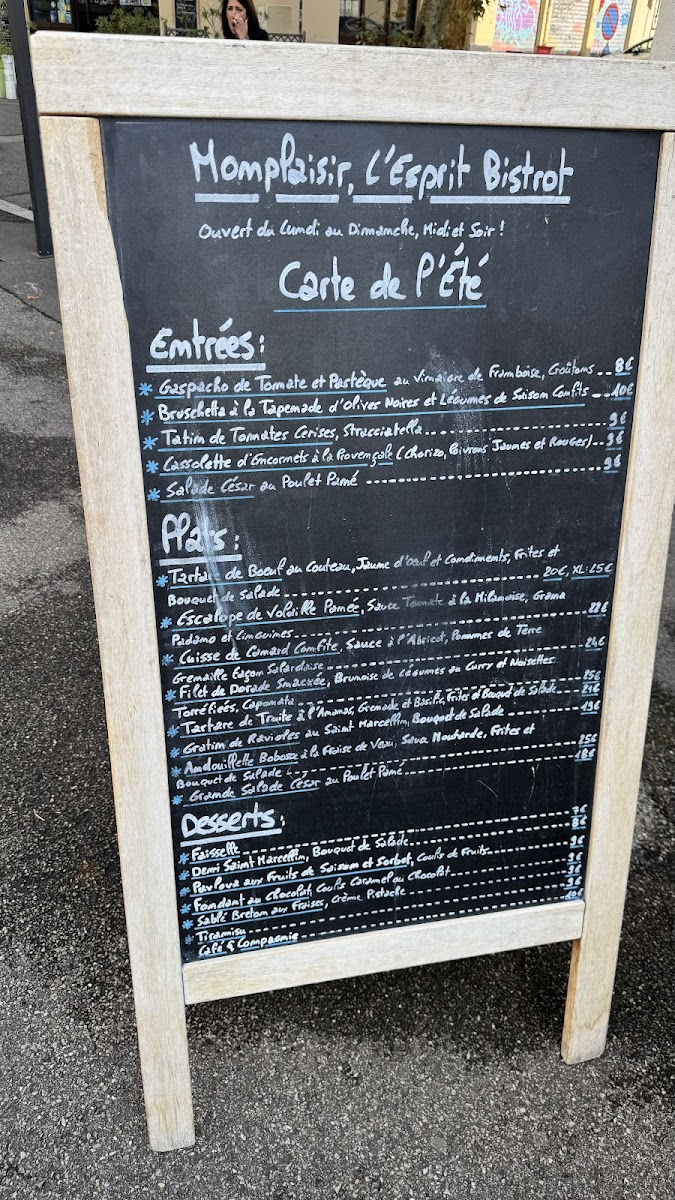 Momplaisir, L'Esprit Bistrot
Ouvert du Lundi au Dimanche, Midi et Soir !
Carte de l'Été
Entrées :
* Gaspacho de Tomate et Pastèque au Vinaigre de Framboise, Croûtons -- 8€
* Bruschetta à la Tapenade d'Olives Noires et Légumes de Saison Confits -- 10€
* Tatin de Tomates Cerises, Stracciatella -- 9€
* Cassolette d'Encornets à la Provençale (Chorizo, Poivrons Jaunes et Rouges) -- 9€
* Salade César au Poulet Pané -- 9€
Plats :
* Tartare de Boeuf au Couteau, Jaune d'oeuf et Condiments, Frites et
Bouquet de Salade -- 20€, XL: 25€
* Escalope de Volaille Panée, Sauce Tomate à la Milanaise, Grana
Padano et Linguines -- 22€
* Cuisse de Canard Confite, Sauce à l'Abricot, Pommes de Terre
Grenaille Façon Salardaise -- 24€
* Filet de Dorade Snackée, Brunoise de Légumes au Curry et Noisettes
Torréfiées, Caponata -- 25€
* Tartare de Truite à l'Ananas, Grenade et Basilic, Frites et Bouquet de Salade -- 24€
* Gratin de Ravioles au Saint Marcellin, Bouquet de Salade -- 19€
* Andouillette Bobosse à la Fraise de Veau, Sauce Moutarde, Frites et
Bouquet de Salade -- 25€
* Grande Salade César au Poulet Pané -- 18€
Desserts :
* Faisselle -- 7€
* Demi Saint Marcellin, Bouquet de Salade -- 8€
* Pavlova aux Fruits de Saison et Sorbet, Coulis de Fruits -- 9€
* Fondant au Chocolat, Coulis Caramel ou Chocolat -- 9€
* Sablé Breton aux Fraises, Crème Pistache -- 9€
* Tiramisu -- 9€
Café & Compagnie -- 10€